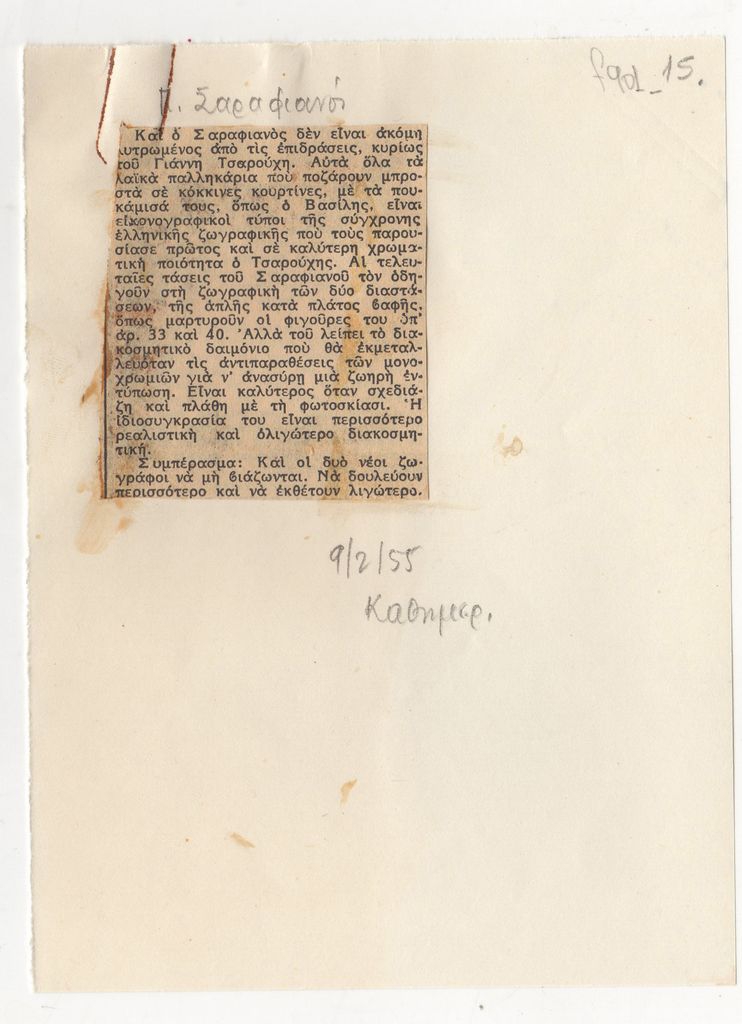 Π. Σαραφιανός
15.
Καὶ ὁ Σαραφιανὸς δὲν εἶναι ἀκόμη
λυτρωμένος ἀπὸ τὶς ἐπιδράσεις, κυρίως
τοῦ Γιάννη Τσαρούχη. Αὐτὰ ὅλα τὰ
λαϊκὰ παλληκάρια ποὺ ποζάρουν μπρο-
στὰ σὲ κόκκινες κουρτίνες, μὲ τὰ που-
κάμισά τους, ὅπως ὁ Βασίλης, εἶναι
εἰκονογραφικοὶ τύποι τῆς σύγχρονης
ἑλληνικῆς ζωγραφικῆς ποὺ τοὺς παρου-
σίασε πρῶτος καὶ σὲ καλύτερη χρωμα-
τικὴ ποιότητα ὁ Τσαρούχης. Αἱ τελευ-
ταῖες τάσεις τοῦ Σαραφιανοῦ τὸν ὁδη-
γοῦν στὴ ζωγραφικὴ τῶν δύο διαστά-
σεων, τῆς ἁπλῆς κατὰ πλάτος βαφῆς,
ὅπως μαρτυροῦν οἱ φιγοῦρες του ὑπ'
ἀρ. 33 καὶ 40. Ἀλλὰ τοῦ λείπει τὸ δια-
κοσμητικὸ δαιμόνιο ποὺ θὰ ἐκμεταλ-
λευόταν τὶς ἀντιπαραθέσεις τῶν μονο-
χρωμιῶν γιὰ ν' ἀνασύρη μιὰ ζωηρὴ ἐν-
τύπωση. Εἶναι καλύτερος ὅταν σχεδιά-
ζη καὶ πλάθη μὲ τὴ φωτοσκίασι. Ἡ
ἰδιοσυγκρασία του εἶναι περισσότερο
ρεαλιστικὴ καὶ ὀλιγώτερο διακοσμη-
τική.
Συμπέρασμα: Καὶ οἱ δυὸ νέοι ζω-
γράφοι νὰ μὴ βιάζωνται. Νὰ δουλεύουν
περισσότερο καὶ νὰ ἐκθέτουν λιγώτερο.
9/2/55
Καθημερ.